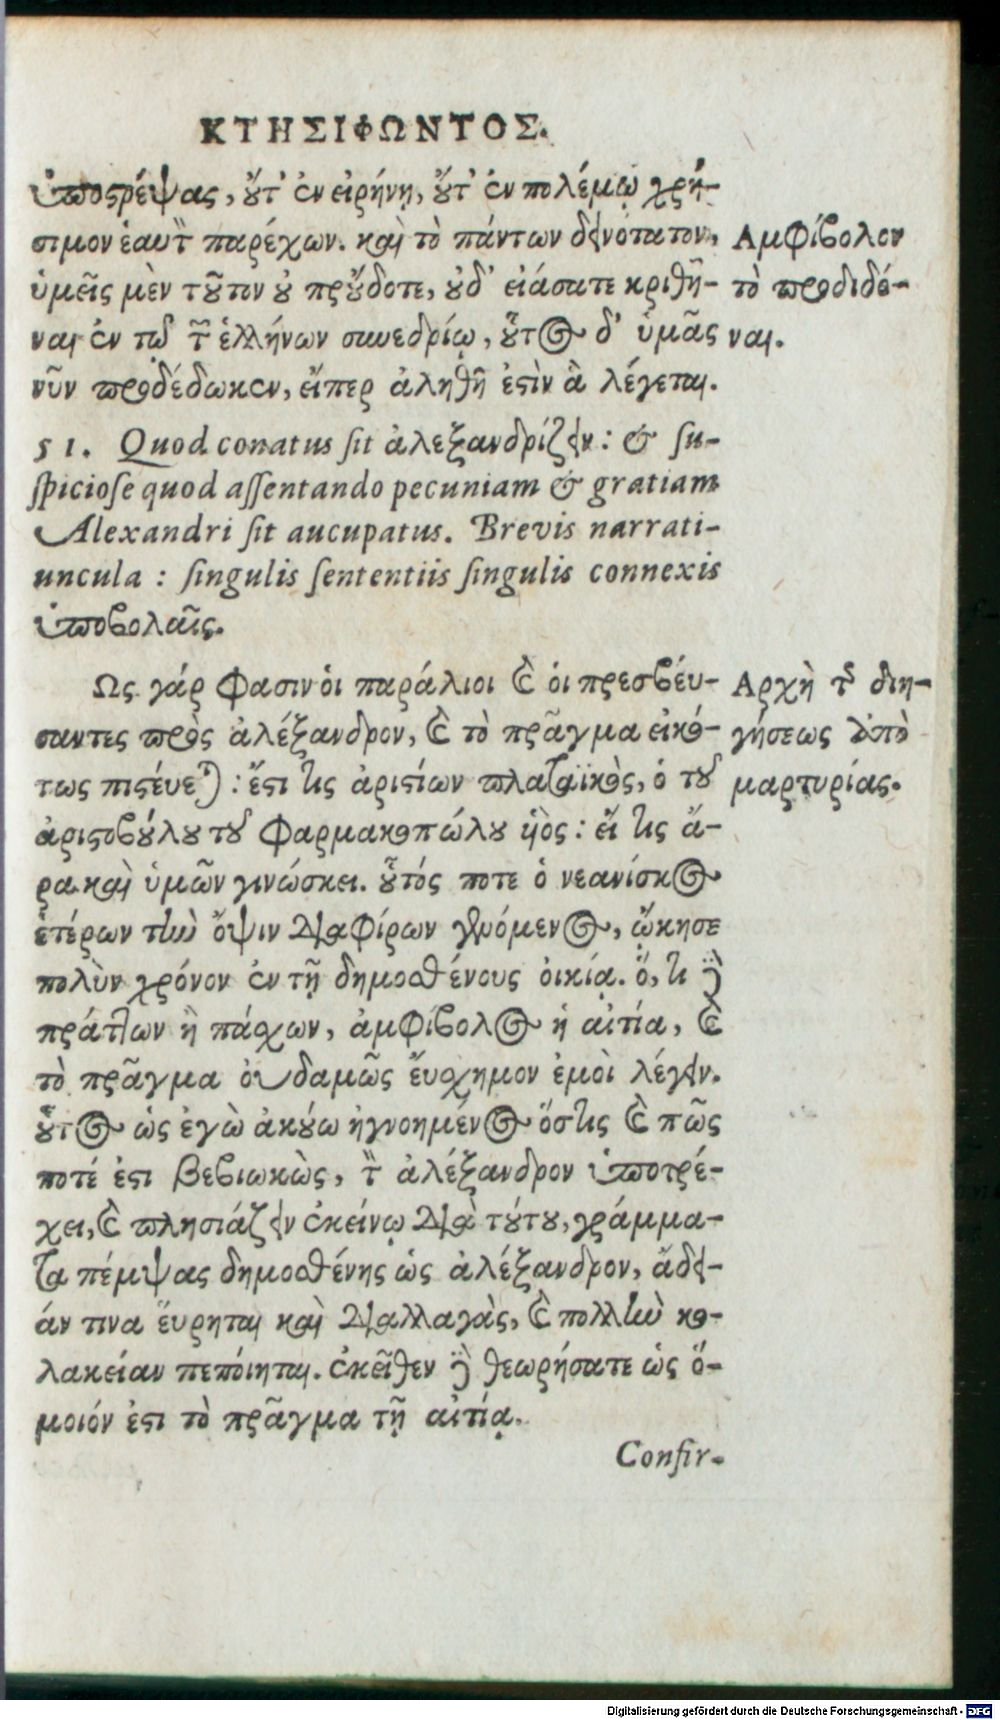 ΚΤΗΣΙΦΩΝΤΟΣ.
ὑποστρέψας, οὔτ' ἐν εἰρήνῃ, οὔτ' ἐν πολέμῳ χρή-
σιμον ἑαυτὸν παρέχων. καὶ τὸ πάντων δεινότατον,
ὑμεῖς μὲν τοῦτον οὐ προὔδοτε, οὐδ' εἰάσατε κριθῆ-
ναι ἐν τῷ τῶν ἑλλήνων συνεδρίῳ, οὗτος δ' ὑμᾶς
νῦν προδέδωκεν, εἴπερ ἀληθῆ ἐστὶν ἃ λέγεται.
Αμφίβολον
τὸ προδιδό-
ναι.
51. Quod conatus sit ἀλεξανδρίζειν: & su-
spiciose quod assentando pecuniam & gratiam
Alexandri sit aucupatus. Brevis narrati-
uncula : singulis sententiis singulis connexis
ὑποβολαῖς.
Ως γάρ φασιν οἱ παράλιοι καὶ οἱ πρεσβεύ-
σαντες πρὸς ἀλέξανδρον, καὶ τὸ πρᾶγμα εἰκό-
τως πιστεύεται: ἔστι τις ἀριστίων πλαταϊκὸς, ὁ τοῦ
ἀριστοβούλου τοῦ φαρμακοπώλου υἱὸς: εἴ τις ἄ-
ρα καὶ ὑμῶν γινώσκει. οὗτός ποτε ὁ νεανίσκος
ἑτέρων τὴν ὄψιν διαφέρων γενόμενος, ᾤκησε
πολὺν χρόνον ἐν τῇ δημοσθένους οἰκίᾳ. ὅ, τι δὲ
πράττων ἢ πάσχων, ἀμφίβολος ἡ αἰτία, καὶ
τὸ πρᾶγμα οὐδαμῶς εὔσχημον ἐμοὶ λέγειν.
οὗτος ὡς ἐγὼ ἀκούω ἠγνοημένος ὅστις καὶ πῶς
ποτέ ἐστι βεβιωκὼς, τὸν ἀλέξανδρον ὑποτρέ-
χει, καὶ πλησιάζειν ἐκείνῳ διὰ τούτου, γράμμα-
τα πέμψας δημοσθένης ὡς ἀλέξανδρον, ἄδει-
άν τινα εὕρηται καὶ διαλλαγὰς, καὶ πολλὴν κο-
λακείαν πεποίηται. ἐκεῖθεν δὲ θεωρήσατε ὡς ὅ-
μοιόν ἐστι τὸ πρᾶγμα τῇ αἰτίᾳ.
Αρχὴ τῆς διη-
γήσεως ἀπὸ
μαρτυρίας.
Confir-
Digitalisierung gefördert durch die Deutsche Forschungsgemeinschaft - DFG